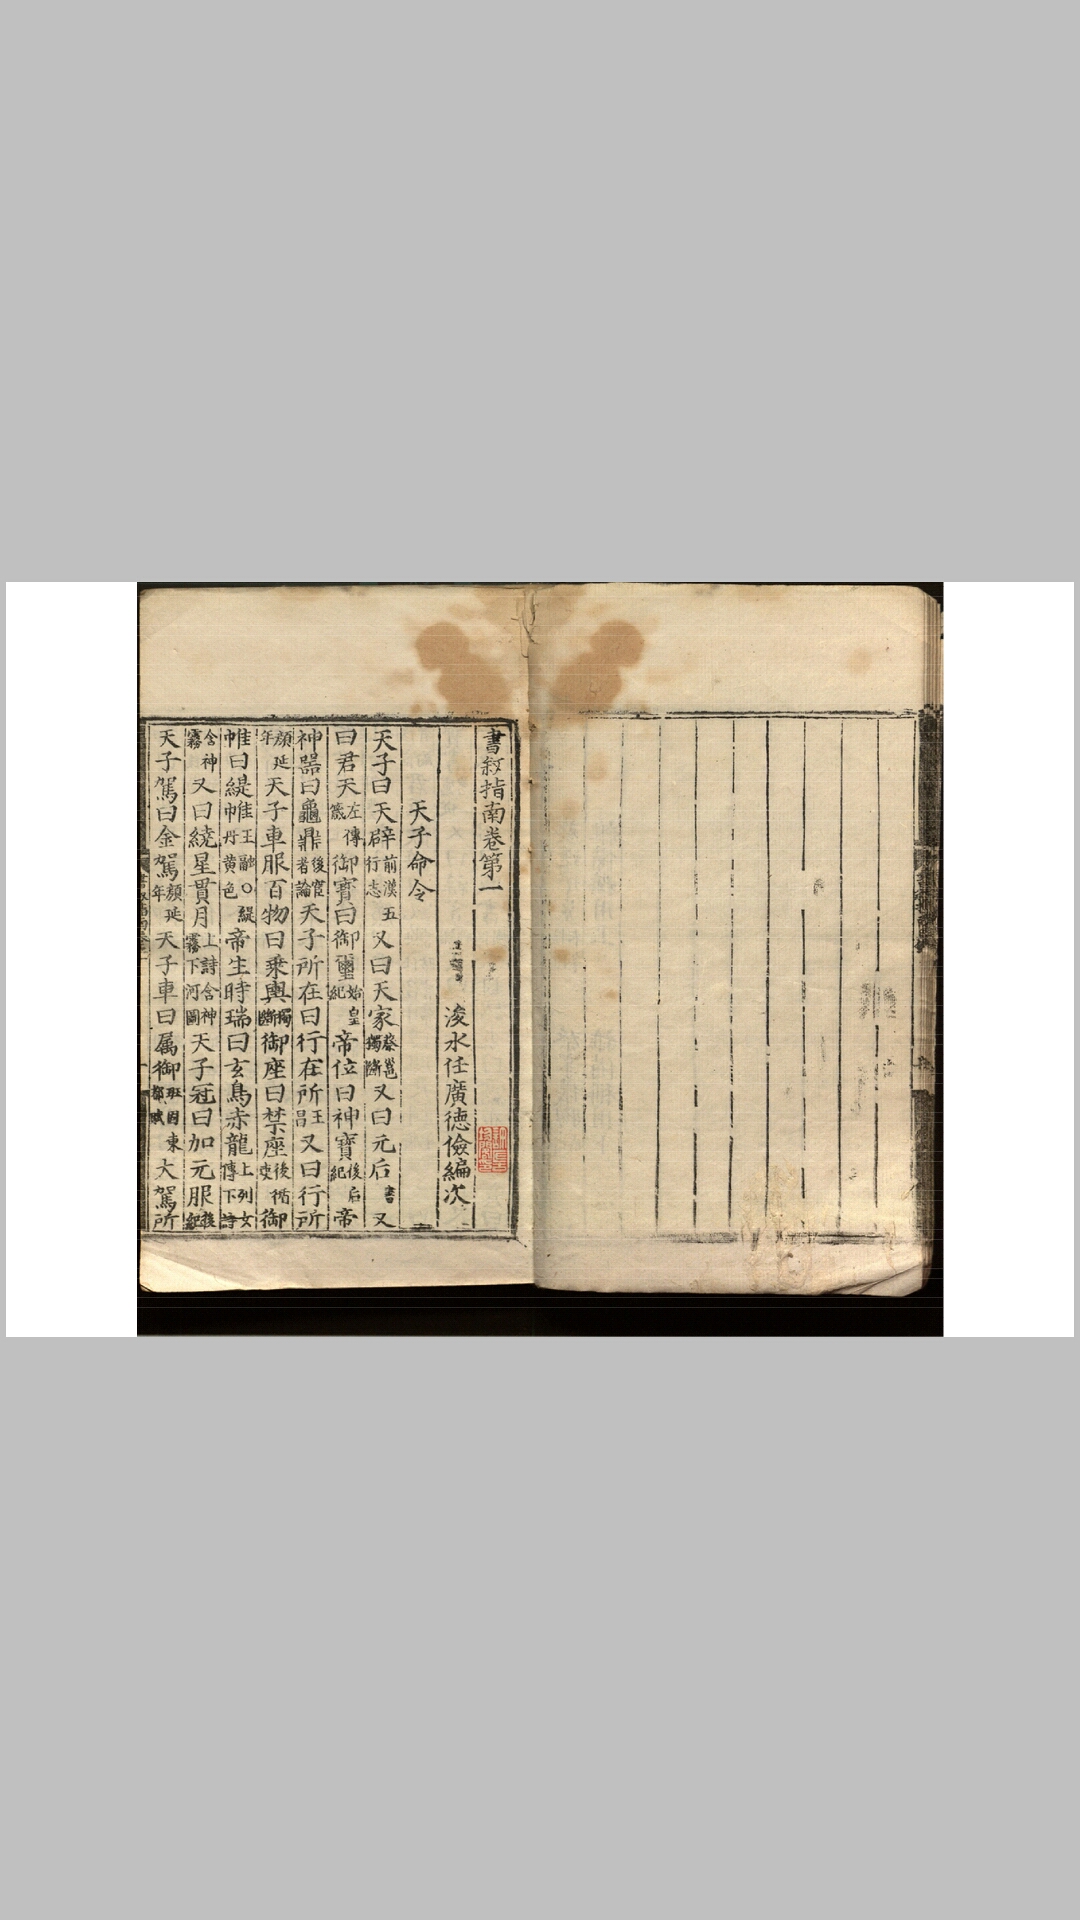 書敘指南卷第一
浚水任廣德儉編次
天子命令
天子曰天辟前漢五行志又曰天家蔡邕獨斷又曰元后書又
曰君天左傳箴御寶曰御璽始皇紀帝位曰神寶後后紀帝
神器曰龜鼎後宦者論天子所在曰行在所王昌又曰行所
顏延年天子車服百物曰乘輿獨斷御座曰禁座後循吏御
帷曰緹帷王融〇緹巾丹黄色帝生時瑞曰玄鳥赤龍上列女傳下詩
含神霧又曰繞星貫月上詩含神霧下河圖天子冠曰加元服後紀
天子駕曰金駕顏延年天子車曰属御班固東都賦大駕所